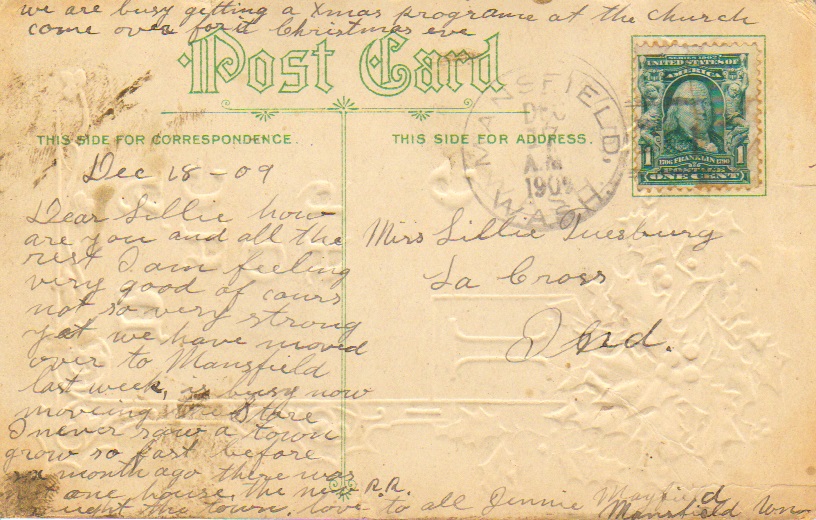 we are busy getting a Xmas programe at the church
come over for it Christmas eve
Post Card
THIS SIDE FOR CORRESPONDENCE.
THIS SIDE FOR ADDRESS.
MANSFIELD, WASH.
DEC
A.M
190
SERIES 1902
UNITED STATES OF
AMERICA
1706 FRANKLIN 1790
1 1
POSTAGE
ONE CENT
Dec 18-09
Dear Lillie how
are you and all the
rest I am feeling
very good of cours
not so very strong
yet we have moved
over to Mansfield
last week, busy now
moveing the Store
I never saw a town
grow so fast before
six month ago there was
not one house, the new R.R.
the town. love to all Jennie
Mansfield Wn
Miss Lillie Tuesburg
La Cross
Ind.